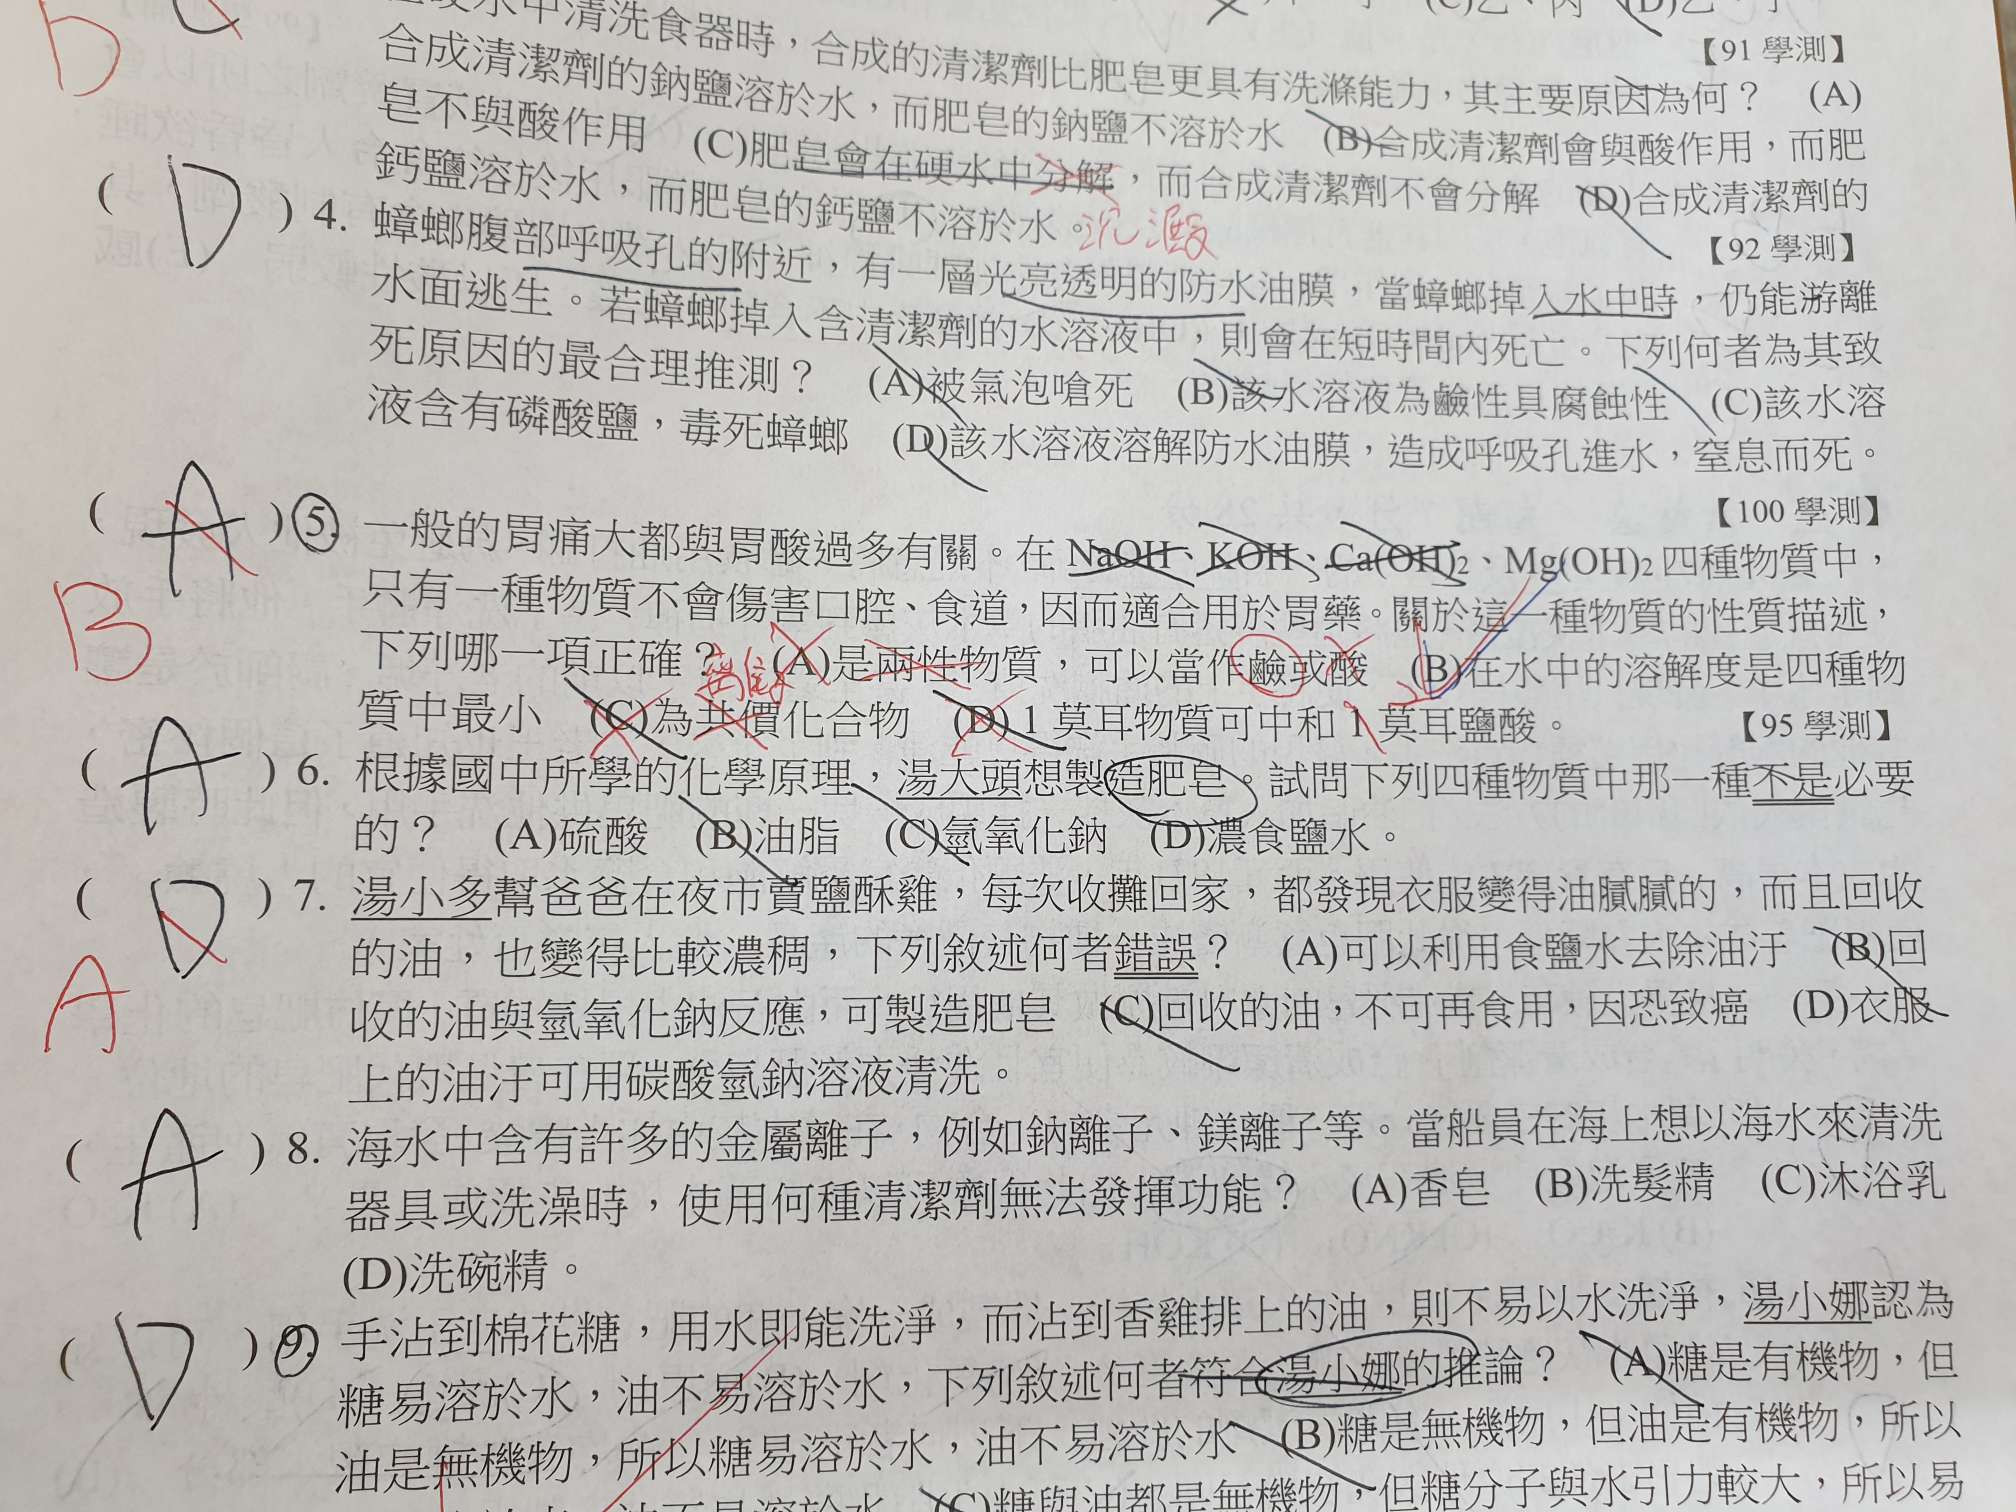 水中清洗食器時，合成的清潔劑比肥皂更具有洗滌能力，其主要原因為何？ (A)
【91 學測】
合成清潔劑的鈉鹽溶於水，而肥皂的鈉鹽不溶於水 (B)合成清潔劑會與酸作用，而肥
皂不與酸作用 (C)肥皂會在硬水中分解，而合成清潔劑不會分解 (D)合成清潔劑的
鈣鹽溶於水，而肥皂的鈣鹽不溶於水。沉澱
【92 學測】
( D ) 4. 蟑螂腹部呼吸孔的附近，有一層光亮透明的防水油膜，當蟑螂掉入水中時，仍能游離
水面逃生。若蟑螂掉入含清潔劑的水溶液中，則會在短時間內死亡。下列何者為其致
死原因的最合理推測？ (A)被氣泡嗆死 (B)該水溶液為鹼性具腐蝕性 (C)該水溶
液含有磷酸鹽，毒死蟑螂 (D)該水溶液溶解防水油膜，造成呼吸孔進水，窒息而死。
【100 學測】
( A ) 5. 一般的胃痛大都與胃酸過多有關。在 NaOH、KOH、Ca(OH)₂、Mg(OH)₂ 四種物質中，
B
只有一種物質不會傷害口腔、食道，因而適合用於胃藥。關於這一種物質的性質描述，
下列哪一項正確？ (A)是兩性物質，可以當作鹼或酸 (B)在水中的溶解度是四種物
質中最小 (C)為共價化合物 (D) 1 莫耳物質可中和 1 莫耳鹽酸。
【95 學測】
( A ) 6. 根據國中所學的化學原理，湯大頭想製造肥皂。試問下列四種物質中那一種不是必要
的？ (A)硫酸 (B)油脂 (C)氫氧化鈉 (D)濃食鹽水。
( D ) 7. 湯小多幫爸爸在夜市賣鹽酥雞，每次收攤回家，都發現衣服變得油膩膩的，而且回收
A
的油，也變得比較濃稠，下列敘述何者錯誤？ (A)可以利用食鹽水去除油汙 (B)回
收的油與氫氧化鈉反應，可製造肥皂 (C)回收的油，不可再食用，因恐致癌 (D)衣服
上的油汙可用碳酸氫鈉溶液清洗。
( A ) 8. 海水中含有許多的金屬離子，例如鈉離子、鎂離子等。當船員在海上想以海水來清洗
器具或洗澡時，使用何種清潔劑無法發揮功能？ (A)香皂 (B)洗髮精 (C)沐浴乳
(D)洗碗精。
( D ) 9. 手沾到棉花糖，用水即能洗淨，而沾到香雞排上的油，則不易以水洗淨，湯小娜認為
糖易溶於水，油不易溶於水，下列敘述何者符合湯小娜的推論？ (A)糖是有機物，但
油是無機物，所以糖易溶於水，油不易溶於水 (B)糖是無機物，但油是有機物，所以
(C)糖與油都是無機物，但糖分子與水引力較大，所以易